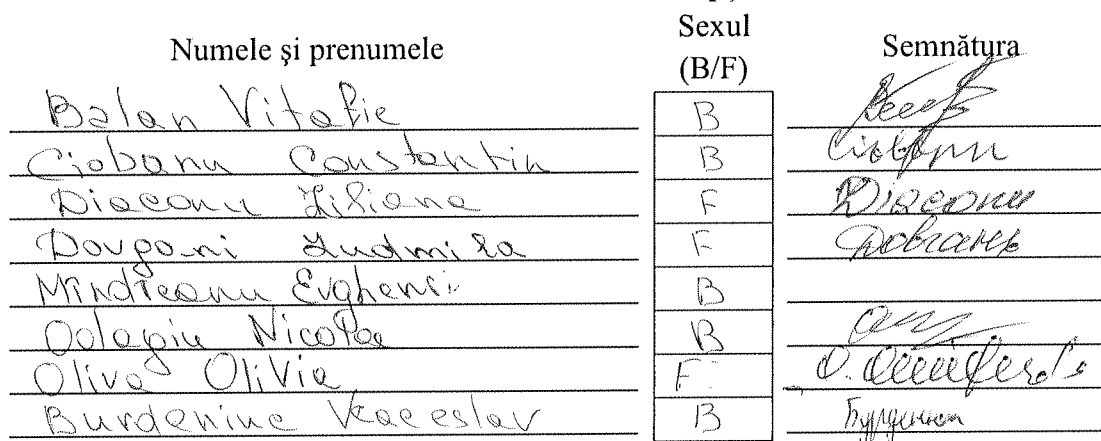 Numele şi prenumele Sexul (B/F) Semnătura
Balan Vitalie B
Ciobanu Constantin B Ciobanu
Diaconu Liliana F Diaconu
Dovgani Ludmila F Довгань
Mîndreanu Evghenii B
Odagiu Nicolae B
Oliva Olivia F
Burdeniuc Veaceslav B